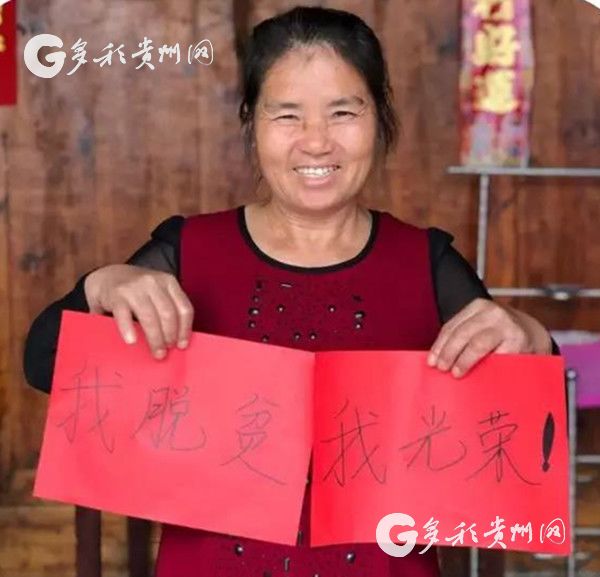 多彩贵州网
好运
我脱贫
我光荣!
多彩贵州网